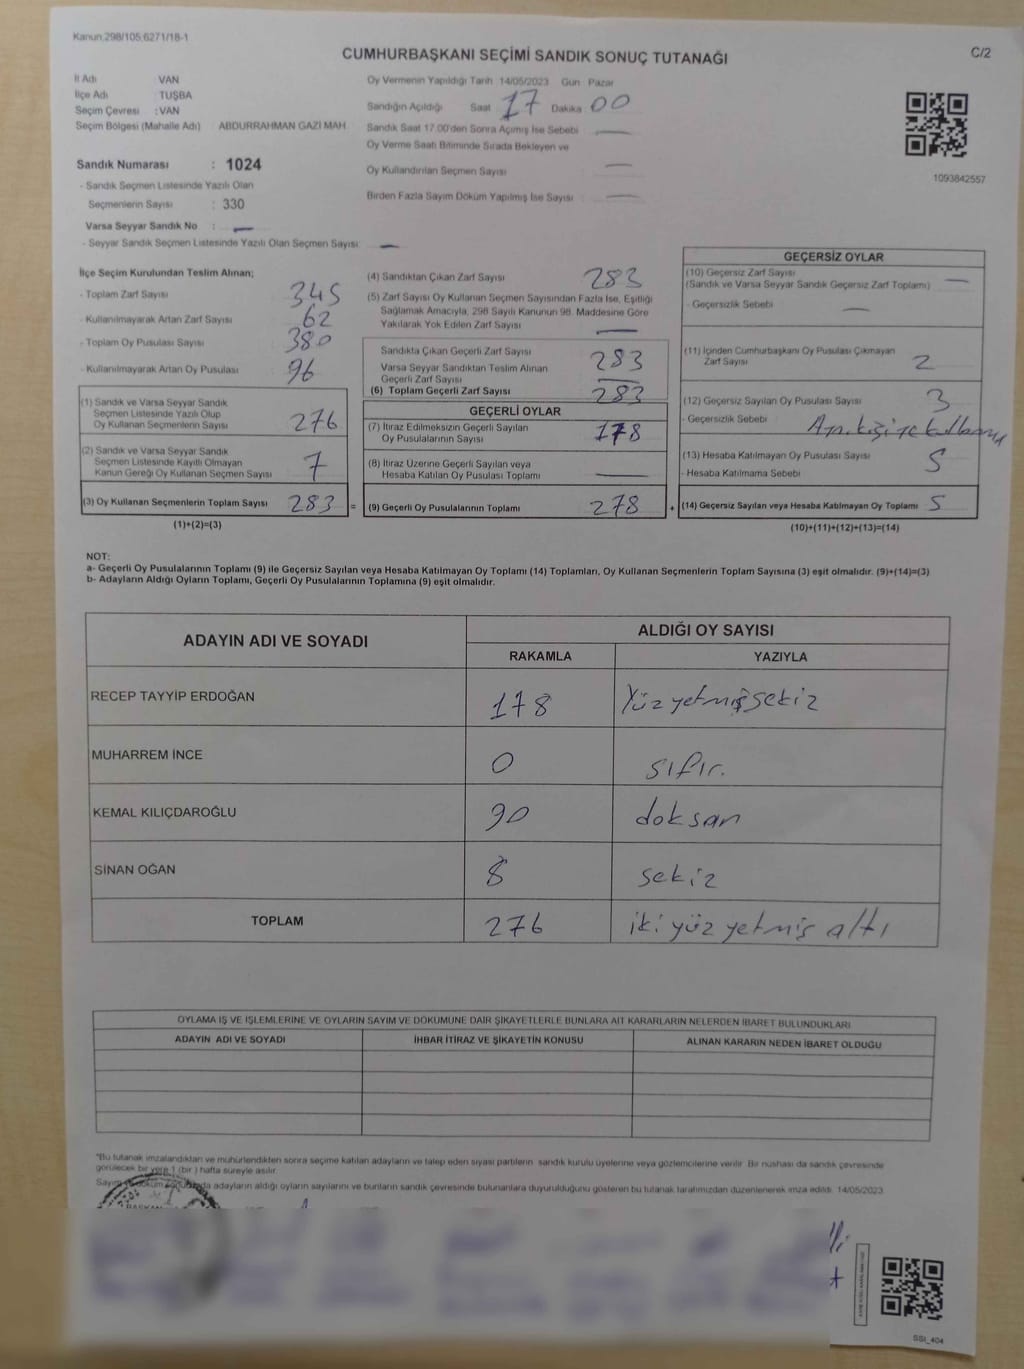 Kanun.298/105;6271/18-1
C/2
CUMHURBAŞKANI SEÇİMİ SANDIK SONUÇ TUTANAĞI
İl Adı VAN
İlçe Adı : TUŞBA
Seçim Çevresi : VAN
Seçim Bölgesi (Mahalle Adı) ABDURRAHMAN GAZİ MAH.
Oy Vermenin Yapıldığı Tarih 14/05/2023 Gün Pazar
Sandığın Açıldığı Saat : 17 Dakika : 00
Sandık Saat 17.00'den Sonra Açılmış İse Sebebi —
Oy Verme Saati Bitiminde Sırada Bekleyen ve
Oy Kullandırılan Seçmen Sayısı —
Birden Fazla Sayım Döküm Yapılmış İse Sayısı : —
1093842557
Sandık Numarası : 1024
- Sandık Seçmen Listesinde Yazılı Olan
Seçmenlerin Sayısı : 330
Varsa Seyyar Sandık No : —
- Seyyar Sandık Seçmen Listesinde Yazılı Olan Seçmen Sayısı: —
İlçe Seçim Kurulundan Teslim Alınan;
- Toplam Zarf Sayısı 345
- Kullanılmayarak Artan Zarf Sayısı 62
- Toplam Oy Pusulası Sayısı 380
- Kullanılmayarak Artan Oy Pusulası 96
(1) Sandık ve Varsa Seyyar Sandık
Seçmen Listesinde Yazılı Olup
Oy Kullanan Seçmenlerin Sayısı 276
(2) Sandık ve Varsa Seyyar Sandık
Seçmen Listesinde Kayıtlı Olmayan
Kanun Gereği Oy Kullanan Seçmen Sayısı 7
(3) Oy Kullanan Seçmenlerin Toplam Sayısı 283 =
(1)+(2)=(3)
(4) Sandıktan Çıkan Zarf Sayısı 283
(5) Zarf Sayısı Oy Kullanan Seçmen Sayısından Fazla İse, Eşitliği
Sağlamak Amacıyla, 298 Sayılı Kanunun 98. Maddesine Göre
Yakılarak Yok Edilen Zarf Sayısı —
Sandıkta Çıkan Geçerli Zarf Sayısı 283
Varsa Seyyar Sandıktan Teslim Alınan
Geçerli Zarf Sayısı —
(6) Toplam Geçerli Zarf Sayısı 283
GEÇERLİ OYLAR
(7) İtiraz Edilmeksizin Geçerli Sayılan
Oy Pusulalarının Sayısı 178
(8) İtiraz Üzerine Geçerli Sayılan veya
Hesaba Katılan Oy Pusulası Toplamı —
(9) Geçerli Oy Pusulalarının Toplamı 278 +
GEÇERSİZ OYLAR
(10) Geçersiz Zarf Sayısı
(Sandık ve Varsa Seyyar Sandık Geçersiz Zarf Toplamı) —
- Geçersizlik Sebebi —
(11) İçinden Cumhurbaşkanı Oy Pusulası Çıkmayan
Zarf Sayısı 2
(12) Geçersiz Sayılan Oy Pusulası Sayısı 3
- Geçersizlik Sebebi
(13) Hesaba Katılmayan Oy Pusulası Sayısı 5
- Hesaba Katılmama Sebebi
(14) Geçersiz Sayılan veya Hesaba Katılmayan Oy Toplamı 5
(10)+(11)+(12)+(13)=(14)
NOT:
a- Geçerli Oy Pusulalarının Toplamı (9) ile Geçersiz Sayılan veya Hesaba Katılmayan Oy Toplamı (14) Toplamları, Oy Kullanan Seçmenlerin Toplam Sayısına (3) eşit olmalıdır. (9)+(14)=(3)
b- Adayların Aldığı Oyların Toplamı, Geçerli Oy Pusulalarının Toplamına (9) eşit olmalıdır.
ADAYIN ADI VE SOYADI
ALDIĞI OY SAYISI
RAKAMLA YAZIYLA
RECEP TAYYİP ERDOĞAN 178 Yüz yetmiş sekiz
MUHARREM İNCE 0 sıfır.
KEMAL KILIÇDAROĞLU 90 doksan
SİNAN OĞAN 8 sekiz
TOPLAM 276 iki yüz yetmiş altı
OYLAMA İŞ VE İŞLEMLERİNE VE OYLARIN SAYIM VE DÖKÜMÜNE DAİR ŞİKAYETLERLE BUNLARA AİT KARARLARIN NELERDEN İBARET BULUNDUKLARI
ADAYIN ADI VE SOYADI İHBAR İTİRAZ VE ŞİKAYETİN KONUSU ALINAN KARARIN NEDEN İBARET OLDUĞU
"Bu tutanak imzalandıktan ve mühürlendikten sonra seçime katılan adayların ve talep eden siyasi partilerin sandık kurulu üyelerine veya gözlemcilerine verilir. Bir nüshası da sandık çevresinde
görülecek bir yere 1 (bir) hafta süreyle asılır.
Sayım adayların aldığı oyların sayılarını ve bunların sandık çevresinde bulunanlara duyurulduğunu gösteren bu tutanak tarafımızdan düzenlenerek imza edildi. 14/05/2023
BAŞKAN
SSI_404